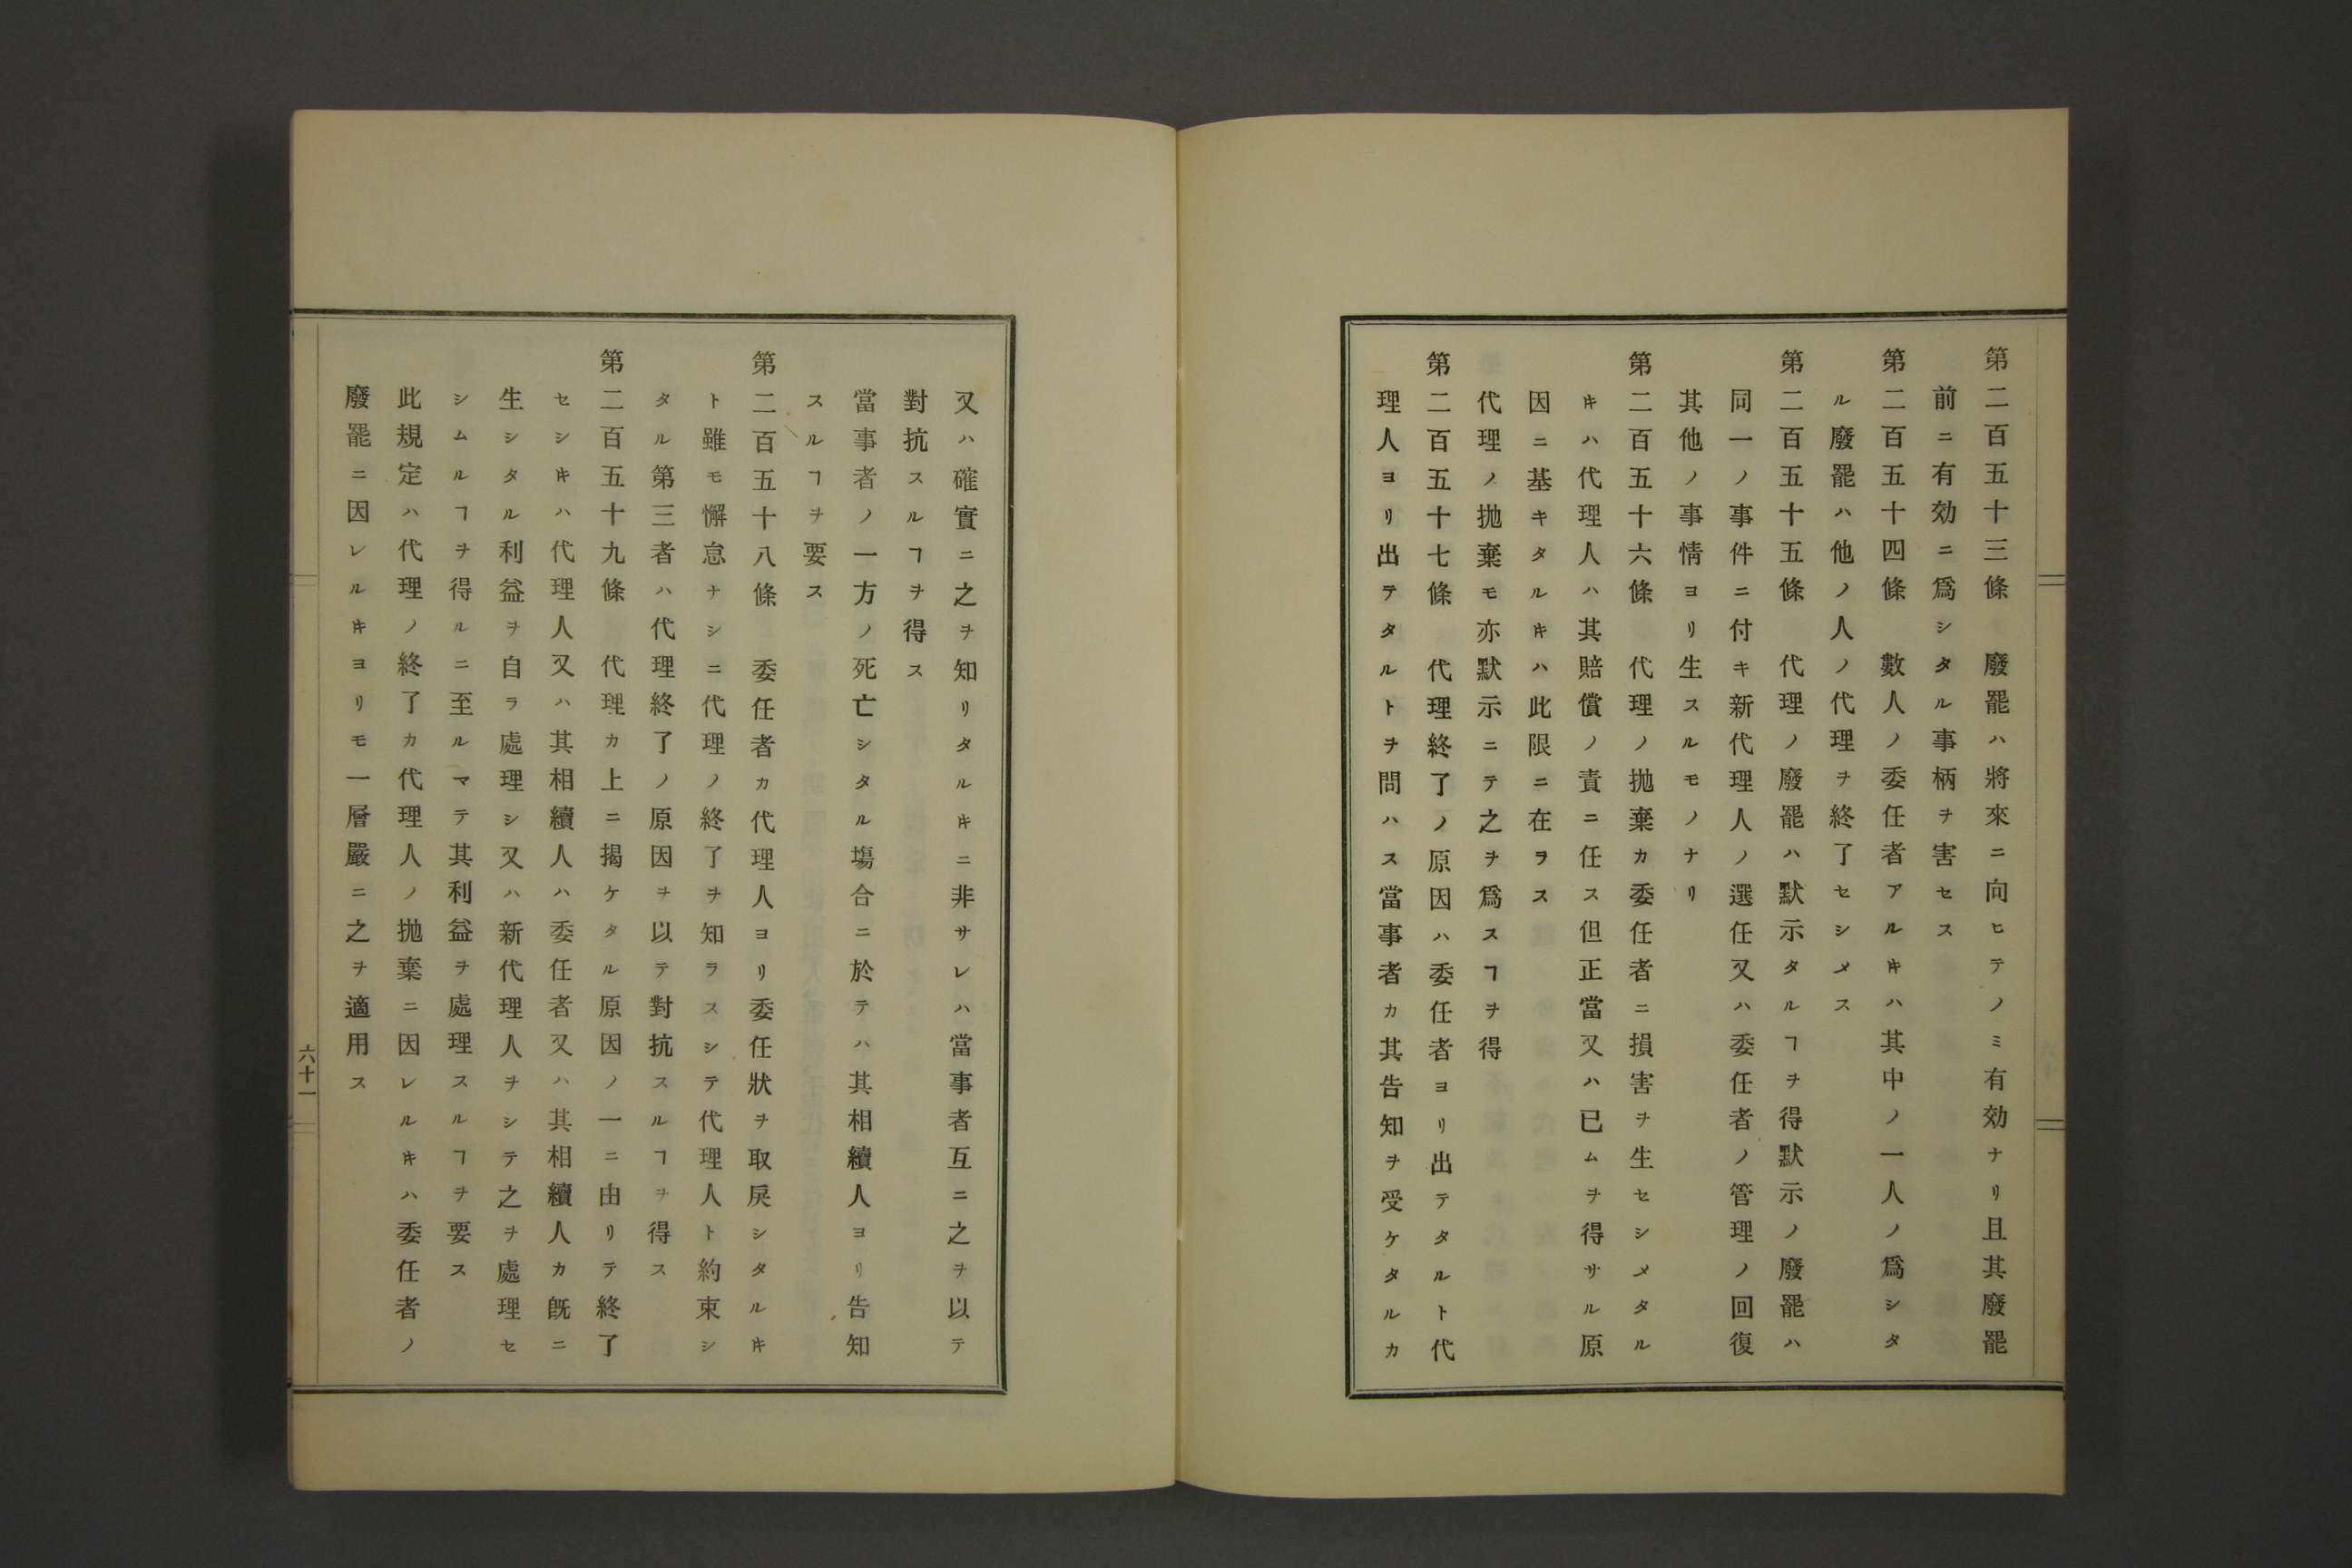 第二百五十三條　廢罷ハ將來ニ向ヒテノミ有効ナリ且其廢罷
前ニ有効ニ爲シタル事柄ヲ害セス
第二百五十四條　數人ノ委任者アルキハ其中ノ一人ノ爲シタ
ル廢罷ハ他ノ人ノ代理ヲ終了セシメス
第二百五十五條　代理ノ廢罷ハ默示タルヿヲ得默示ノ廢罷ハ
同一ノ事件ニ付キ新代理人ノ選任又ハ委任者ノ管理ノ回復
其他ノ事情ヨリ生スルモノナリ
第二百五十六條　代理ノ抛棄カ委任者ニ損害ヲ生セシメタル
キハ代理人ハ其賠償ノ責ニ任ス但正當又ハ已ムヲ得サル原
因ニ基キタルキハ此限ニ在ラス
代理ノ抛棄モ亦默示ニテ之ヲ爲スヿヲ得
第二百五十七條　代理終了ノ原因ハ委任者ヨリ出テタルト代
理人ヨリ出テタルトヲ問ハス當事者カ其告知ヲ受ケタルカ
又ハ確實ニ之ヲ知リタルキニ非サレハ當事者互ニ之ヲ以テ
對抗スルヿヲ得ス
當事者ノ一方ノ死亡シタル塲合ニ於テハ其相續人ヨリ告知
スルヿヲ要ス
第二百五十八條　委任者カ代理人ヨリ委任狀ヲ取戾シタルキ
ト雖モ懈怠ナシニ代理ノ終了ヲ知ラスシテ代理人ト約束シ
タル第三者ハ代理終了ノ原因ヲ以テ對抗スルヿヲ得ス
第二百五十九條　代理カ上ニ揭ケタル原因ノ一ニ由リテ終了
セシキハ代理人又ハ其相續人ハ委任者又ハ其相續人カ旣ニ
生シタル利益ヲ自ラ處理シ又ハ新代理人ヲシテ之ヲ處理セ
シムルヿヲ得ルニ至ルマテ其利益ヲ處理スルヿヲ要ス
此規定ハ代理ノ終了カ代理人ノ抛棄ニ因レルキハ委任者ノ
廢罷ニ因レルキヨリモ一層嚴ニ之ヲ適用ス
六十一